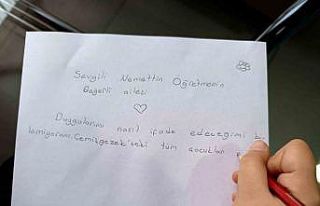 Sevgili Necmettin Öğretmenin
Değerli ailesi
Duygularımı nasıl ifade edeceğimi bi
lemiyorum. Çemişgezek'teki tüm çocuklar